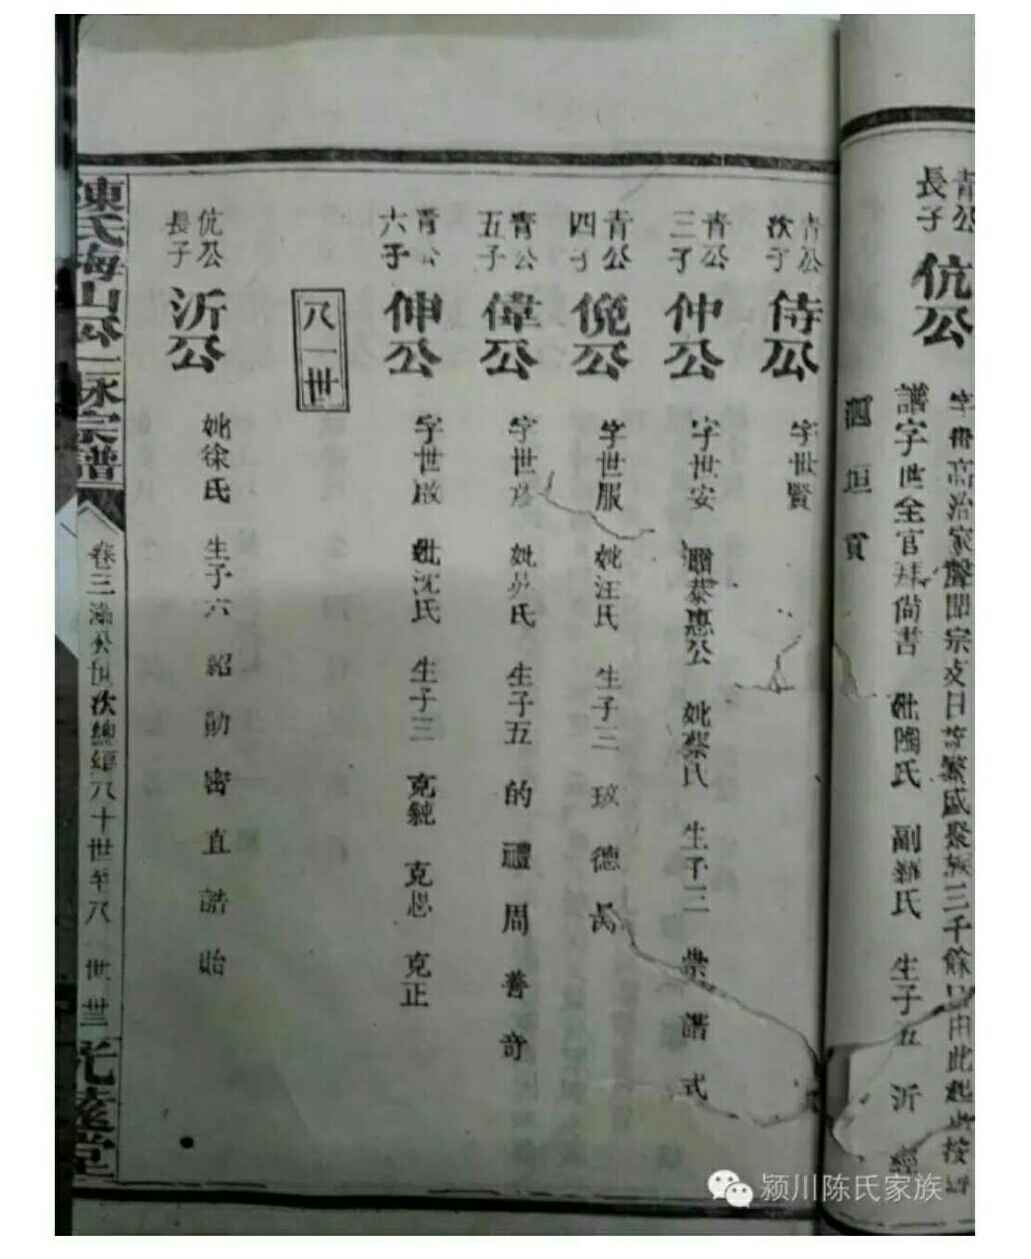 青公
長子
伉公
字世高治家聲聞宗支日許繁盛聚族三千餘口由此起
譜字世全官拜尚書 妣陶氏 副羅氏 生子五 沂 經
泗 垣 貫
青公
次子
侍公
字世賢
青公
三子
仲公
字世安 謚恭惠公 妣蔡氏 生子三 崇 諧 式
青公
四子
俛公
字世服 妣汪氏 生子三 玻 德 禼
青公
五子
偉公
字世彥 妣吳氏 生子五 的 禮 周 善 奇
青公
六子
伸公
字世啟 妣沈氏 生子三 克統 克思 克正
八一世
伉公
長子
沂公
妣徐氏 生子六 紹 勛 密 直 誥 貽
陳氏梅山公一脉宗譜
卷三 公世次總編八十世至八一世 卅三
光遠堂
颍川陈氏家族